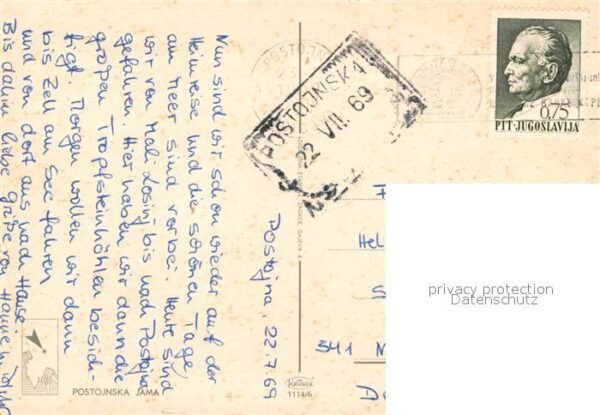 Postojna, 22.7.69
Nun sind wir schon wieder auf der
Heimreise und die schönen Tage
am Meer sind vorbei. Heute sind
wir von Mali Losinj bis nach Postojna
gefahren. Hier haben wir dann die
großen Tropfsteinhöhlen besich-
tigt. Morgen wollen wir dann
bis Zell am See fahren
und von dort aus nach Hause.
Bis dahin liebe Grüße von Hanne u.
POSTOJNSKA JAMA
1114/6
POSTOJNSKA
22 VII. 69
0,75
PTT-JUGOSLAVIJA
Hel
341 M
privacy protection
Datenschutz